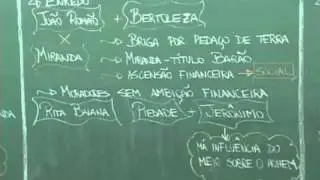 ENREDO
JOÃO ROMÃO + BERTOLEZA
X → BRIGA POR PEDAÇO DE TERRA
MIRANDA → MIRANDA - TÍTULO BARÃO
→ ASCENSÃO FINANCEIRA → SOCIAL
→ MORADORES SEM AMBIÇÃO FINANCEIRA
RITA BAIANA PIEDADE + JERÔNIMO
MÁ INFLUÊNCIA DO
MEIO SOBRE O HOMEM